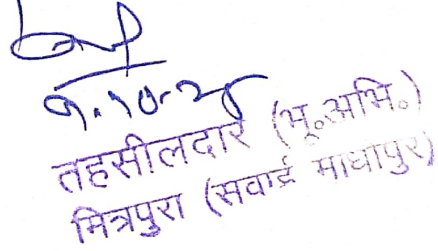 तहसीलदार (भू.अभि.)
मित्रपुरा (सवाई माधोपुर)